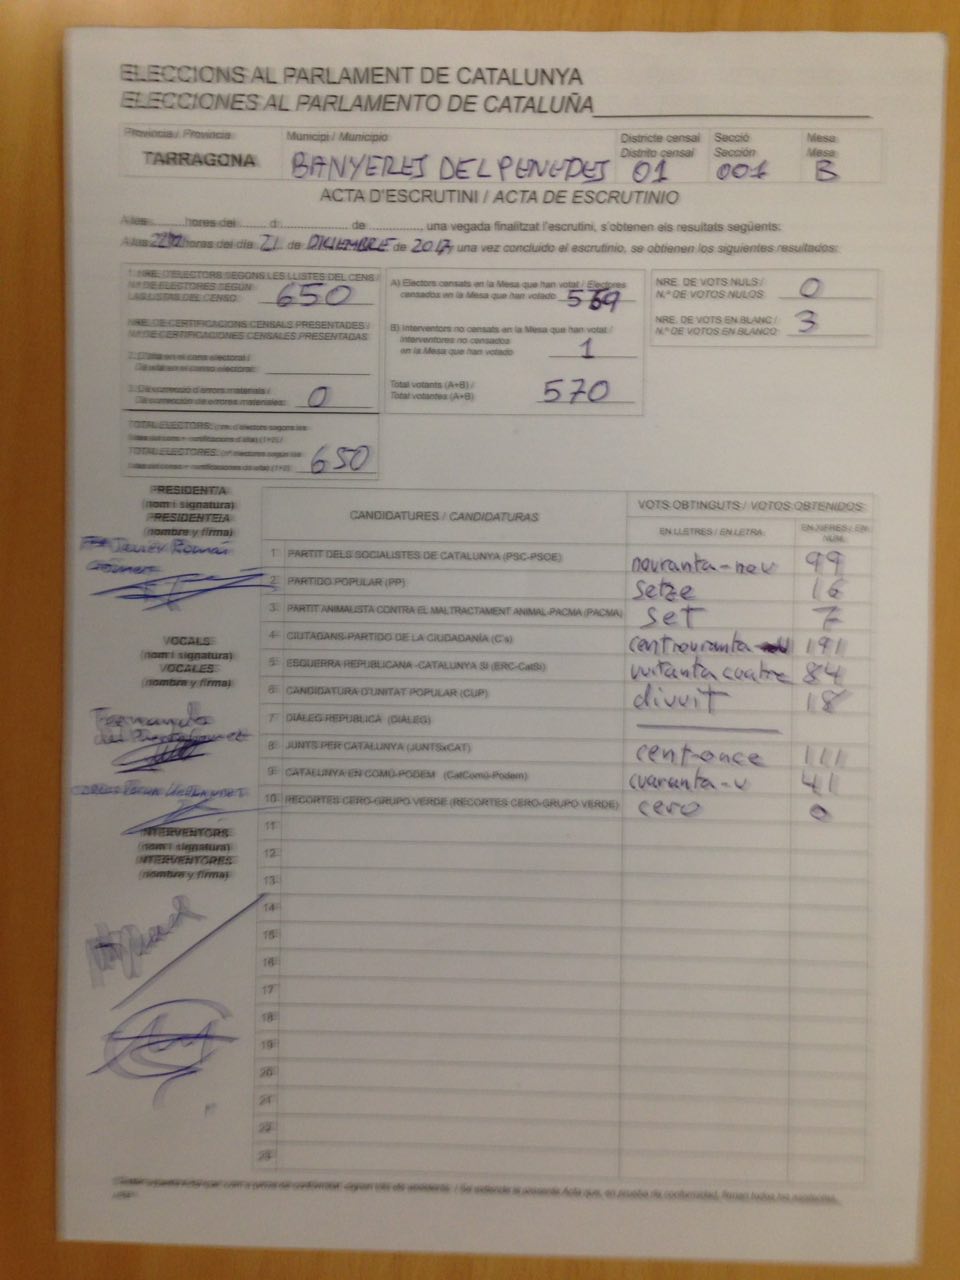 ELECCIONS AL PARLAMENT DE CATALUNYA
ELECCIONES AL PARLAMENTO DE CATALUÑA
Provincia / Provincia Municipi / Municipio Districte censal Secció Mesa
Distrito censal Sección Mesa
TARRAGONA BANYERES DEL PENEDES 01 001 B
ACTA D'ESCRUTINI / ACTA DE ESCRUTINIO
A les ........ hores del ........ d ........ de ............, una vegada finalitzat l'escrutini, s'obtenen els resultats següents:
A las horas del día 21 de DICIEMBRE de 2017, una vez concluido el escrutinio, se obtienen los siguientes resultados:
1. NRE. D'ELECTORS SEGONS LES LLISTES DEL CENS /
Nº DE ELECTORES SEGÚN
LAS LISTAS DEL CENSO: 650
NRE. DE CERTIFICACIONS CENSALS PRESENTADES /
Nº DE CERTIFICACIONES CENSALES PRESENTADAS
2. D'alta en el cens electoral /
De alta en el censo electoral:
3. De correcció d'errors materials /
De corrección de errores materiales: 0
TOTAL ELECTORS: (nre. d'electors segons les
llistes del cens + certificacions d'alta) (1+2) /
TOTAL ELECTORES: (nº electores según las
listas del censo + certificaciones de alta) (1+2) 650
A) Electors censats en la Mesa que han votat / Electores
censados en la Mesa que han votado 569
B) Interventors no censats en la Mesa que han votat /
Interventores no censados
en la Mesa que han votado 1
Total votants (A+B) /
Total votantes (A+B) 570
NRE. DE VOTS NULS /
N.º DE VOTOS NULOS 0
NRE. DE VOTS EN BLANC /
N.º DE VOTOS EN BLANCO 3
PRESIDENT/A
(nom i signatura)
PRESIDENTE/A
(nombre y firma)
Javier Román
VOCALS
(nom i signatura)
VOCALES
(nombre y firma)
Fernando
INTERVENTORS
(nom i signatura)
INTERVENTORES
(nombre y firma)
CANDIDATURES / CANDIDATURAS VOTS OBTINGUTS / VOTOS OBTENIDOS
EN LLETRES / EN LETRA EN XIFRES / EN NÚM.
1 PARTIT DELS SOCIALISTES DE CATALUNYA (PSC-PSOE) nouranta-nou 99
2 PARTIDO POPULAR (PP) setze 16
3 PARTIT ANIMALISTA CONTRA EL MALTRACTAMENT ANIMAL-PACMA (PACMA) set 7
4 CIUTADANS-PARTIDO DE LA CIUDADANÍA (C's) centnouranta 191
5 ESQUERRA REPUBLICANA -CATALUNYA SÍ (ERC-CatSí) vuitanta cuatre 84
6 CANDIDATURA D'UNITAT POPULAR (CUP) divuit 18
7 DIÀLEG REPÚBLICA (DIÀLEG)
8 JUNTS PER CATALUNYA (JUNTSxCAT) cent-once 111
9 CATALUNYA EN COMÚ-PODEM (CatComú-Podem) cuaranta-u 41
10 RECORTES CERO-GRUPO VERDE (RECORTES CERO-GRUPO VERDE) cero 0
11
12
13
14
15
16
17
18
19
20
21
22
23
/ Se extiende la presente Acta que, en prueba de conformidad, firman todos los asistentes.